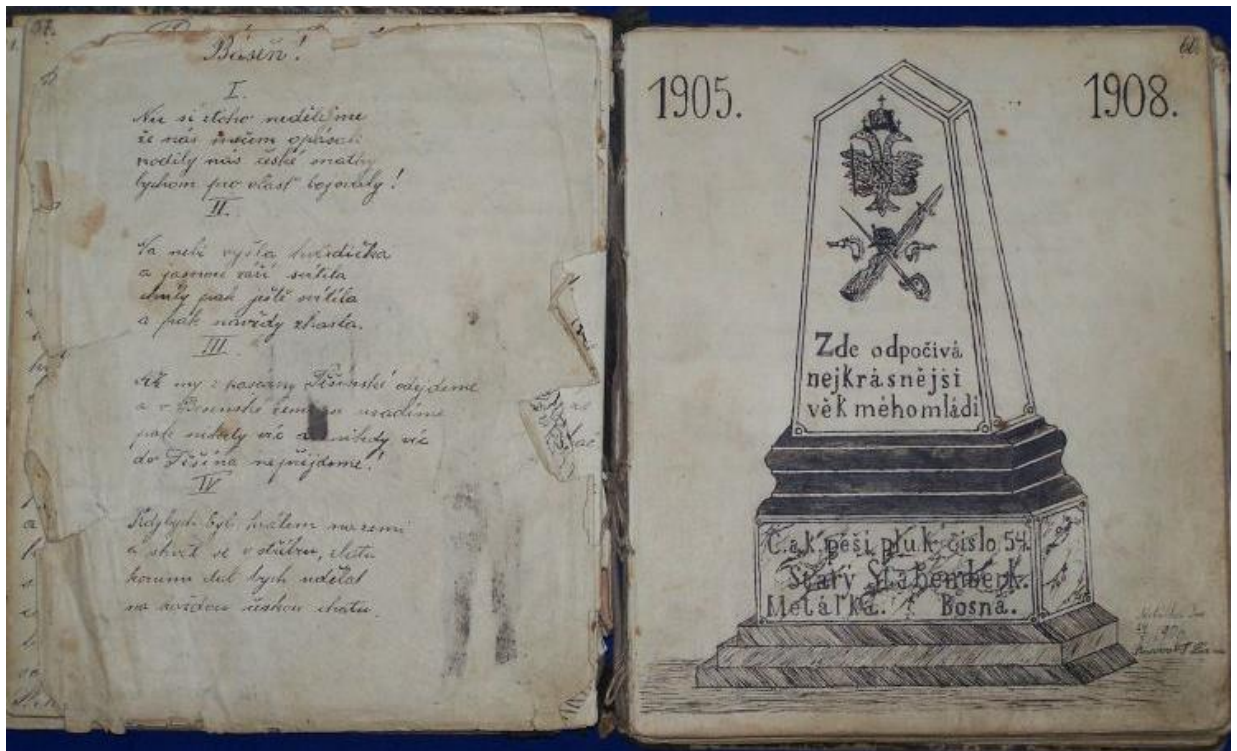 57.
Báseň!
I.
Nic si z toho nedělejme
že nás mečem opásali
rodily nás české matky
bychom pro vlast bojovaly!
II.
vyšla hvězdička
a jasnou září svítila
chvíly pak ještě svítila
a pak navždy zhasla.
III.
Až my z kasáren Těšínské odejdeme
a v Bosenské
pak nikdy víc nikdy víc
do Těšína nepřijdeme!
IV
Kdybych byl králem na zemi
a v stříbru, zlatu
korunu dal bych udělat
na každou českou chatu.
1905.
1908.
60.
Zde odpočívá
nejkrásnější
věk mého mládí
C. a k. pěší pluk číslo 54.
Starý Štahemberk.
Metálka. Bosna.